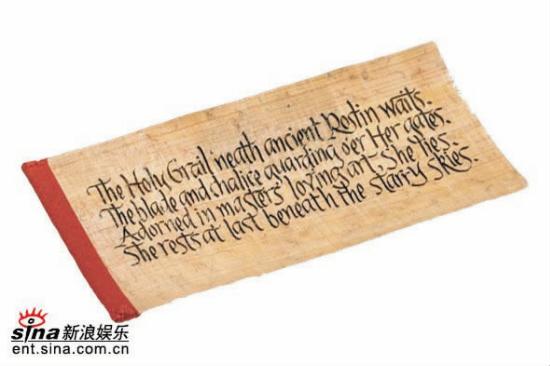 The Holy Grail 'neath ancient Roslin waits.
The blade and chalice guarding o'er Her gates.
Adorned in masters' loving art, She lies.
She rests at last beneath the starry skies.
sina新浪娱乐
ent.sina.com.cn